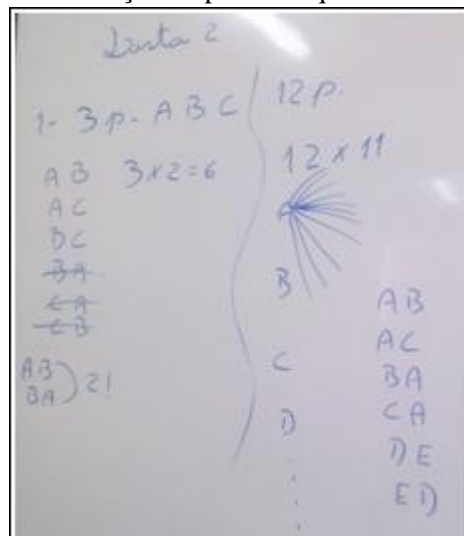 Lista 2
1- 3p- A B C
AB 3x2=6
AC
BC
BA
CA
CB
AB
BA ) 2!
12p.
12 x 11
A
B
C
D
.
.
.
AB
AC
BA
CA
DE
ED